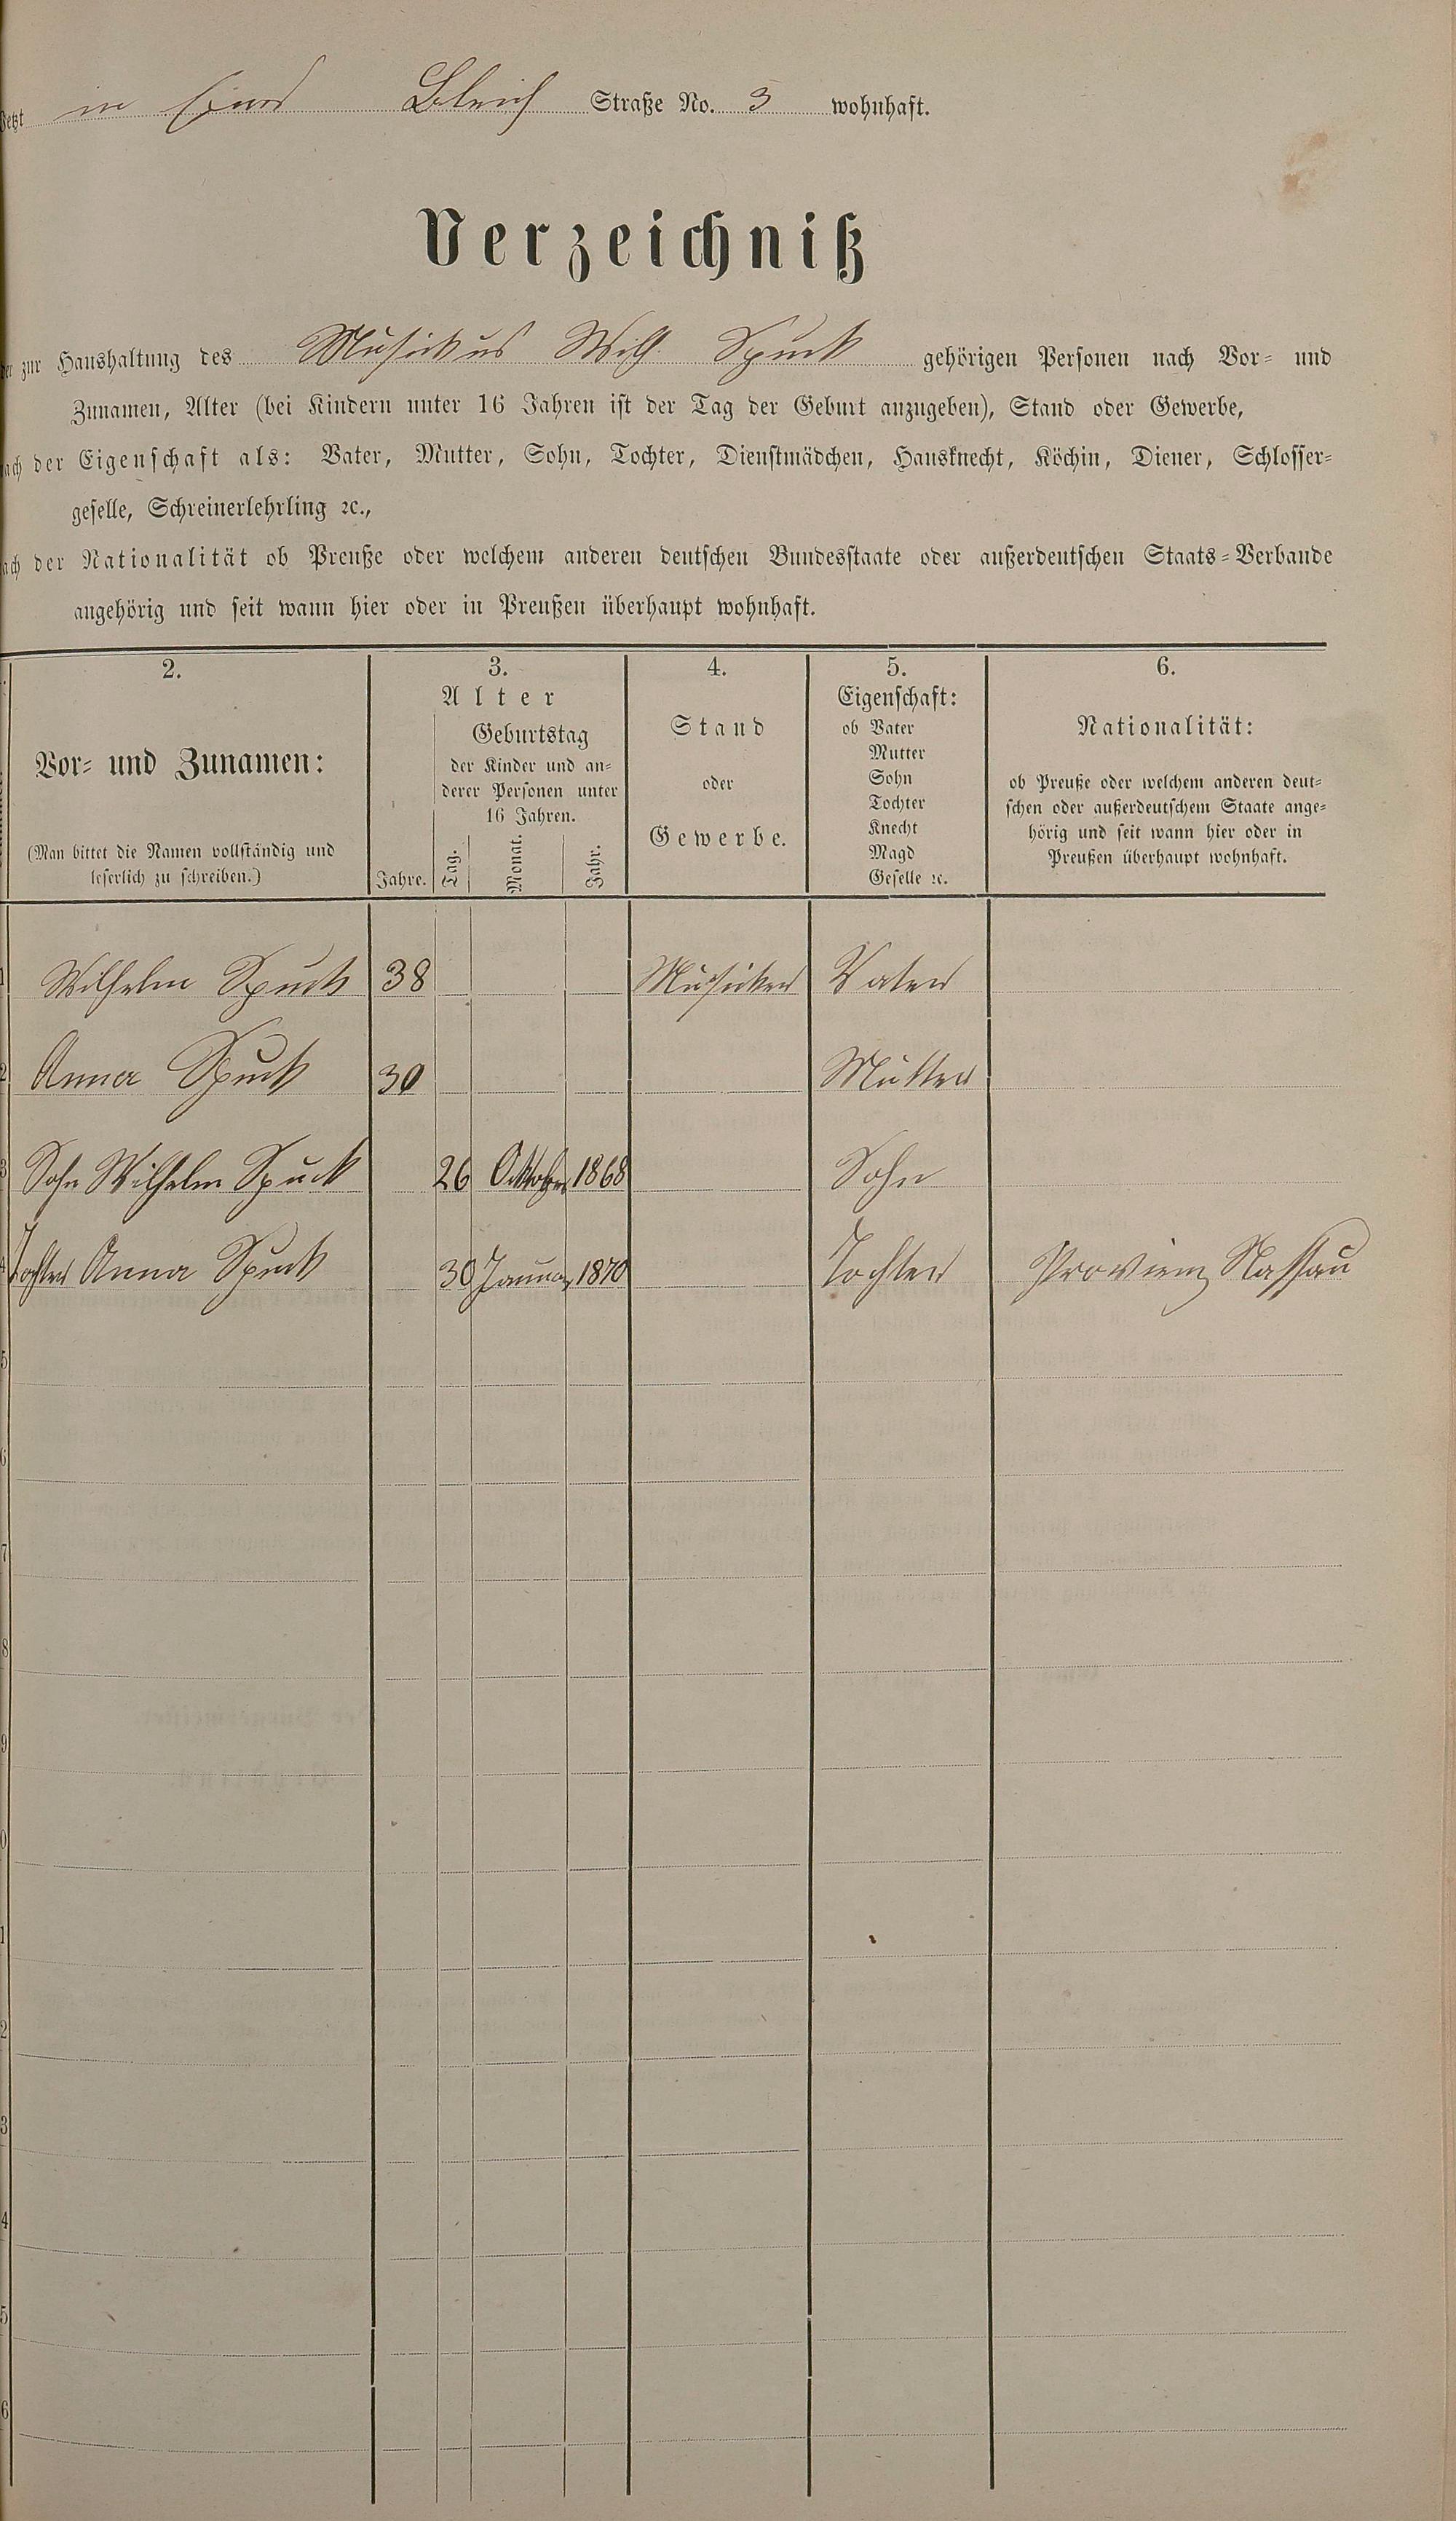 Jetzt in Ems Bleich Straße No. 3 wohnhaft.
Verzeichniß
der zur Haushaltung des Musickus Wilh. Spuck gehörigen Personen nach Vor- und
Zunamen, Alter (bei Kindern unter 16 Jahren ist der Tag der Geburt anzugeben), Stand oder Gewerbe,
nach der Eigenschaft als: Vater, Mutter, Sohn, Tochter, Dienstmädchen, Hausknecht, Köchin, Diener, Schlosser-
geselle, Schreinerlehrling ꝛc.,
nach der Nationalität ob Preuße oder welchem anderen deutschen Bundesstaate oder außerdeutschen Staats-Verbande
angehörig und seit wann hier oder in Preußen überhaupt wohnhaft.
2. 3. 4. 5. 6.
Vor- und Zunamen:
(Man bittet die Namen vollständig und
leserlich zu schreiben.)
Alter
Jahre.
Geburtstag
der Kinder und an-
derer Personen unter
16 Jahren.
Tag. Monat. Jahr.
Stand
oder
Gewerbe.
Eigenschaft:
ob Vater
Mutter
Sohn
Tochter
Knecht
Magd
Geselle ꝛc.
Nationalität:
ob Preuße oder welchem anderen deut-
schen oder außerdeutschem Staate ange-
hörig und seit wann hier oder in
Preußen überhaupt wohnhaft.
1 Wilhelm Spuck 38 Musicker Vater
2 Anna Spuck 30 Mutter
3 Sohn Wilhelm Spuck 26 Oktober 1868 Sohn
4 Tochter Anna Spuck 30 Januar 1870 Tochter Provienz Nassau
5
6
7
8
9
0
1
2
3
4
5
6